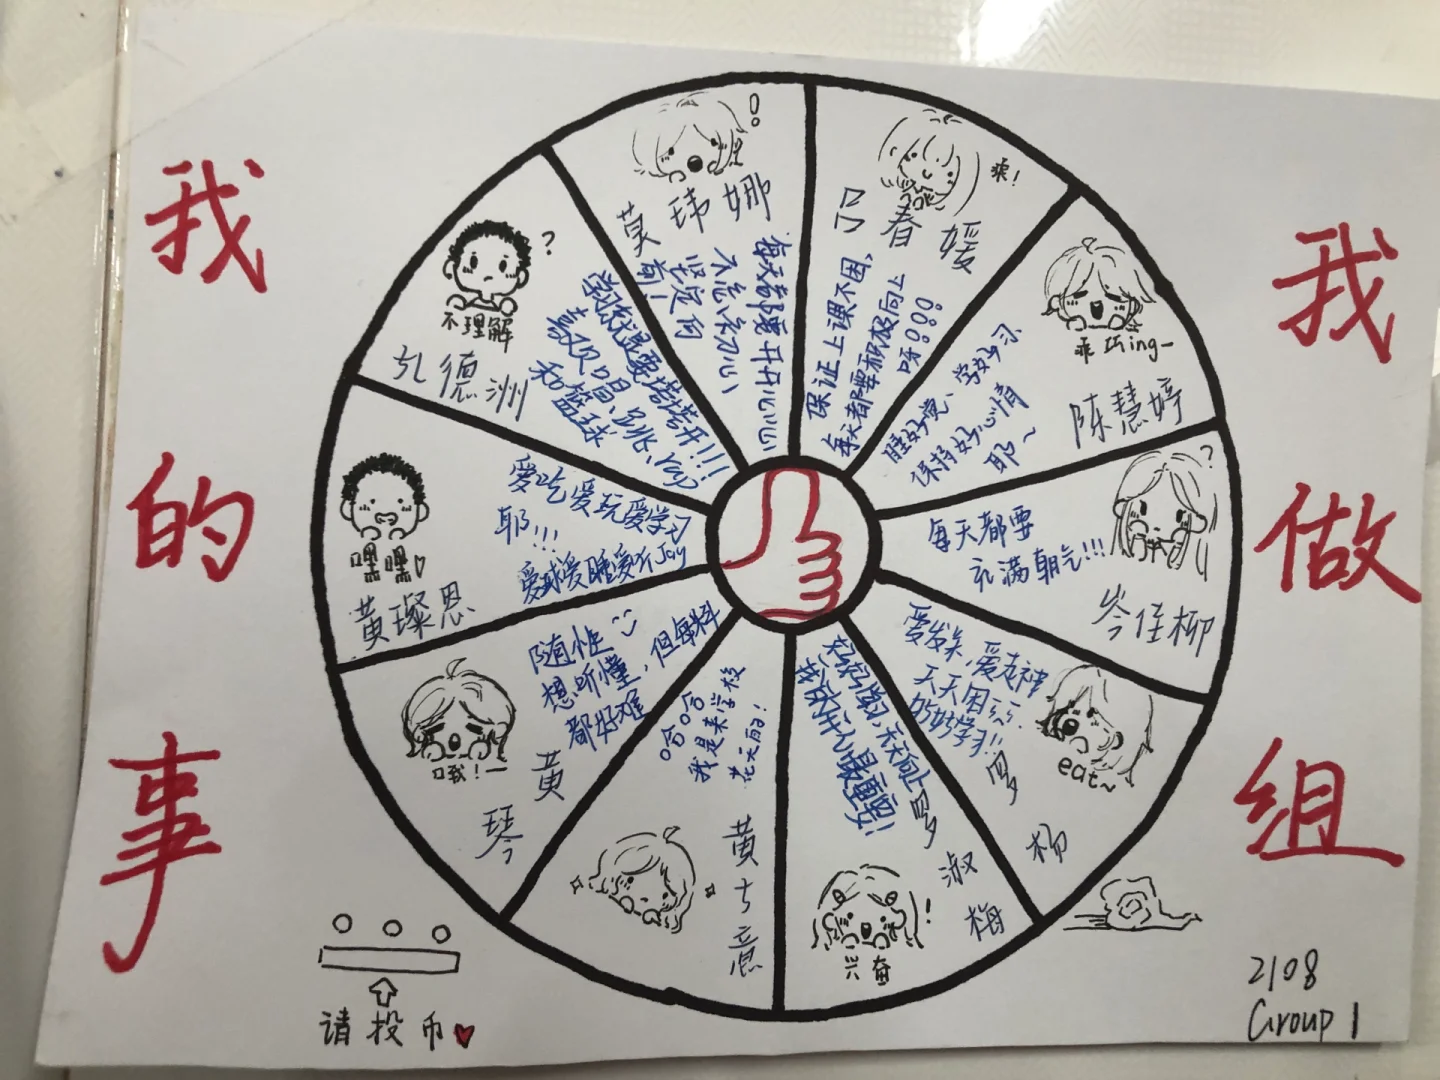 我的事
我做组
莫玮娜
每天都要开开心心
不忘初心
坚定向
前!
吕春媛
乖!
保证上课不困,
每天都要积极向上
呀!
陈慧婷
乖巧ing~
睡好觉、学好习
保持好心情
耶~
岑佳柳
?
每天都要
充满朝气!!!
罗杨
eat~
爱发呆,爱走神
天天困
好好学习!!
罗淑梅
兴奋
!
好好学习 天天向上
我的开心最重要!
黄七意
哈哈哈
我是来学校
花天的!
黄琴
哦!~
随性
想听懂,但每科
都好难
黄璨恩
嘿嘿
爱吃爱玩爱学习
耶!!!
爱球爱睡爱听Jay
孔德洲
不理解
?
学习就是要塔塔开!!!
喜欢唱、跳、rap
和篮球
请投币
2108
Group 1